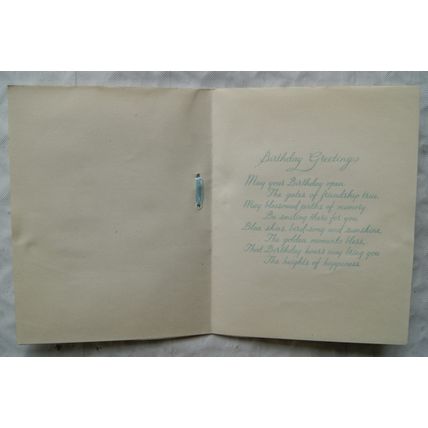 Birthday Greetings
May your Birthday open
The gates of friendship true.
May blossomed paths of memory
Be smiling there for you.
Blue skies bird-song and sunshine
The golden moments bless,
That Birthday hours may bring you
The heights of happiness.